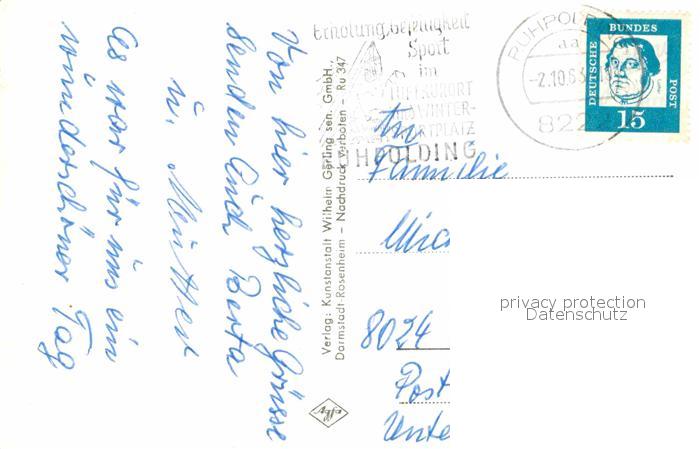 Von hier herzliche Grüsse
senden Euch Berta
u. Mutter
Es war für uns ein
wunderschöner Tag
Verlag: Kunstanstalt Wilhelm Gerling sen. GmbH.,
Darmstadt-Rosenheim – Nachdruck verboten – Ru 347
Agfa
Erholung, Geselligkeit
Sport
im
LUFTKURORT
WINTER-
SPORTPLATZ
RUHPOLDING
RUHPOLDING
aa
-2.10.63
822
DEUTSCHE
BUNDES
POST
15
An
Familie
8024
Post
Unte
privacy protection
Datenschutz